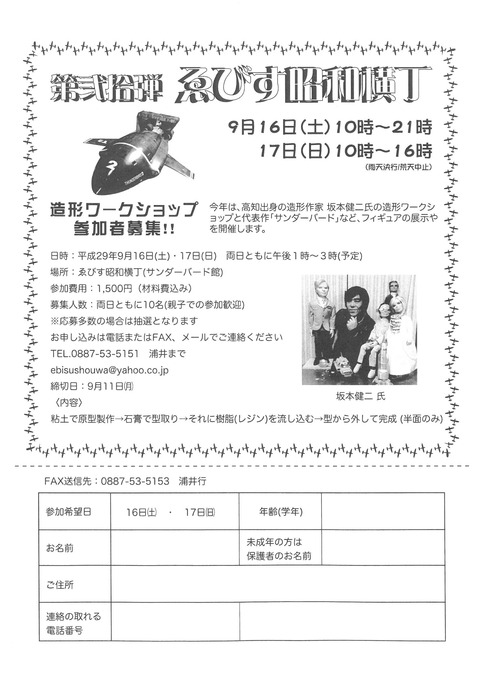 第弐拾弾 ゑびす昭和横丁
9月16日(土)10時～21時
17日(日)10時～16時
(雨天決行/荒天中止)
造形ワークショップ
参加者募集!!
今年は、高知出身の造形作家 坂本健二氏の造形ワークシ
ョップと代表作「サンダーバード」など、フィギュアの展示や
を開催します。
日時：平成29年9月16日(土)・17日(日)　両日ともに午後１時～３時(予定)
場所：ゑびす昭和横丁(サンダーバード館)
参加費用：1,500円（材料費込み）
募集人数：両日ともに10名(親子での参加歓迎)
※応募多数の場合は抽選となります
お申し込みは電話またはFAX、メールでご連絡ください
TEL.0887-53-5151　浦井まで
ebisushouwa@yahoo.co.jp
締切日：9月11日㈪
坂本健二 氏
〈内容〉
粘土で原型製作→石膏で型取り→それに樹脂(レジン)を流し込む→型から外して完成 (半面のみ)
FAX送信先：0887-53-5153　浦井行
参加希望日　16日㈯　・　17日㈰　年齢(学年)
お名前　未成年の方は
保護者のお名前
ご住所
連絡の取れる
電話番号